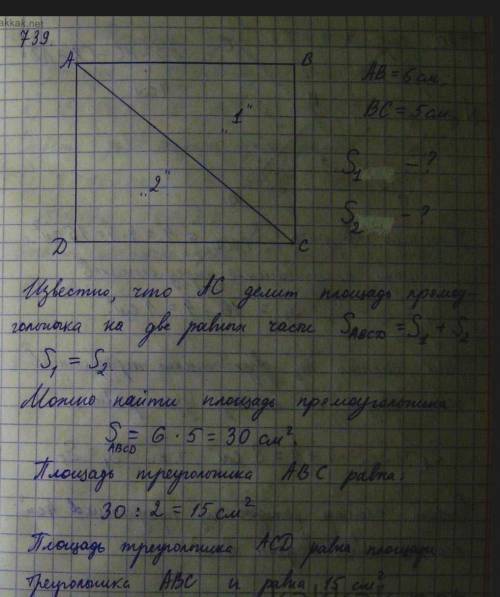 akkak.net
739
A B
AB = 6 см.
BC = 5 см.
„1“
S₁ - ?
„2“
S₂ - ?
D C
Известно, что AC делит площадь прямоу
гольника на две равных части S_ABCD = S₁ + S₂
S₁ = S₂
Можно найти площадь прямоугольника
S_ABCD = 6 · 5 = 30 см².
Площадь треугольника ABC равна:
30 : 2 = 15 см²
Площадь треугольника ACD равна площади
треугольника ABC и равна 15 см²